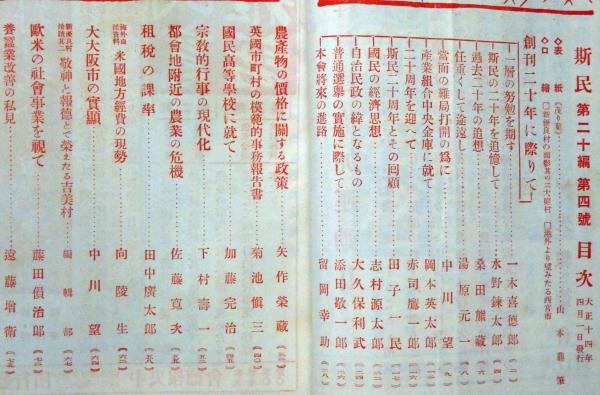 斯民 第二十編 第四號 目次 大正十四年四月一日發行
◇表紙
山本鼎筆
◇口繪
創刊二十年に際りて
一層の努勉を期す 一木喜德郎
斯民の二十年を追憶して 水野錬太郎
過去二十年の追想 桑田熊藏
任重くして途遠し 湯原元一
當面の難局打開の爲に 中川望
產業組合中央金庫に就て 岡本英太郎
二十周年を迎へて 赤司鷹一郎
斯民二十周年とその回顧 田子一民
國民の經濟思想 志村源太郎
自治民政の緯となるもの 大久保利武
普通選擧の實施に際して 添田敬一郎
本會將來の進路 留岡幸助
農產物の價格に關する政策 矢作榮藏
英國市町村の模範的事務報告書 菊池愼三
國民高等學校に就て 加藤完治
宗敎的行事の現代化 下村壽一
都會地附近の農業の危機 佐藤寬次
租稅の課率 田中廣太郎
海外自治資料 米國地方經費の現勢 向陵生
大大阪市の實顯 中川望
敬神と報德とで榮えたる吉美村 編輯部
歐米の社會事業を視て 藤田傊治郎
養蠶業改善の私見 遠藤增衞